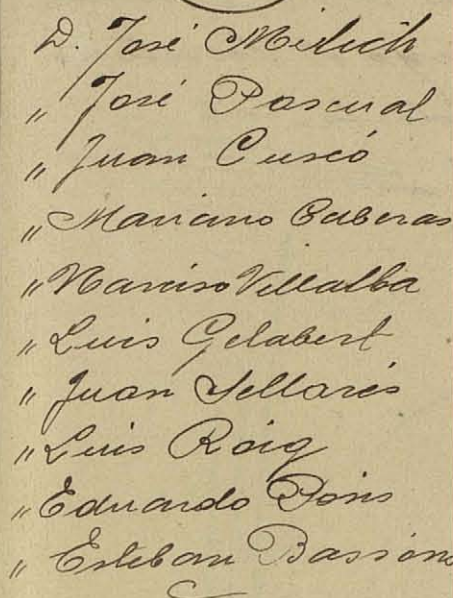 D. José Milich
„ José Pascual
„ Juan Cuscó
„ Mariano Caberas
„ Narciso Villalba
„ Luis Gelabert
„ Juan Sellarés
„ Luis Roig
„ Eduardo Pons
„ Esteban Bassons